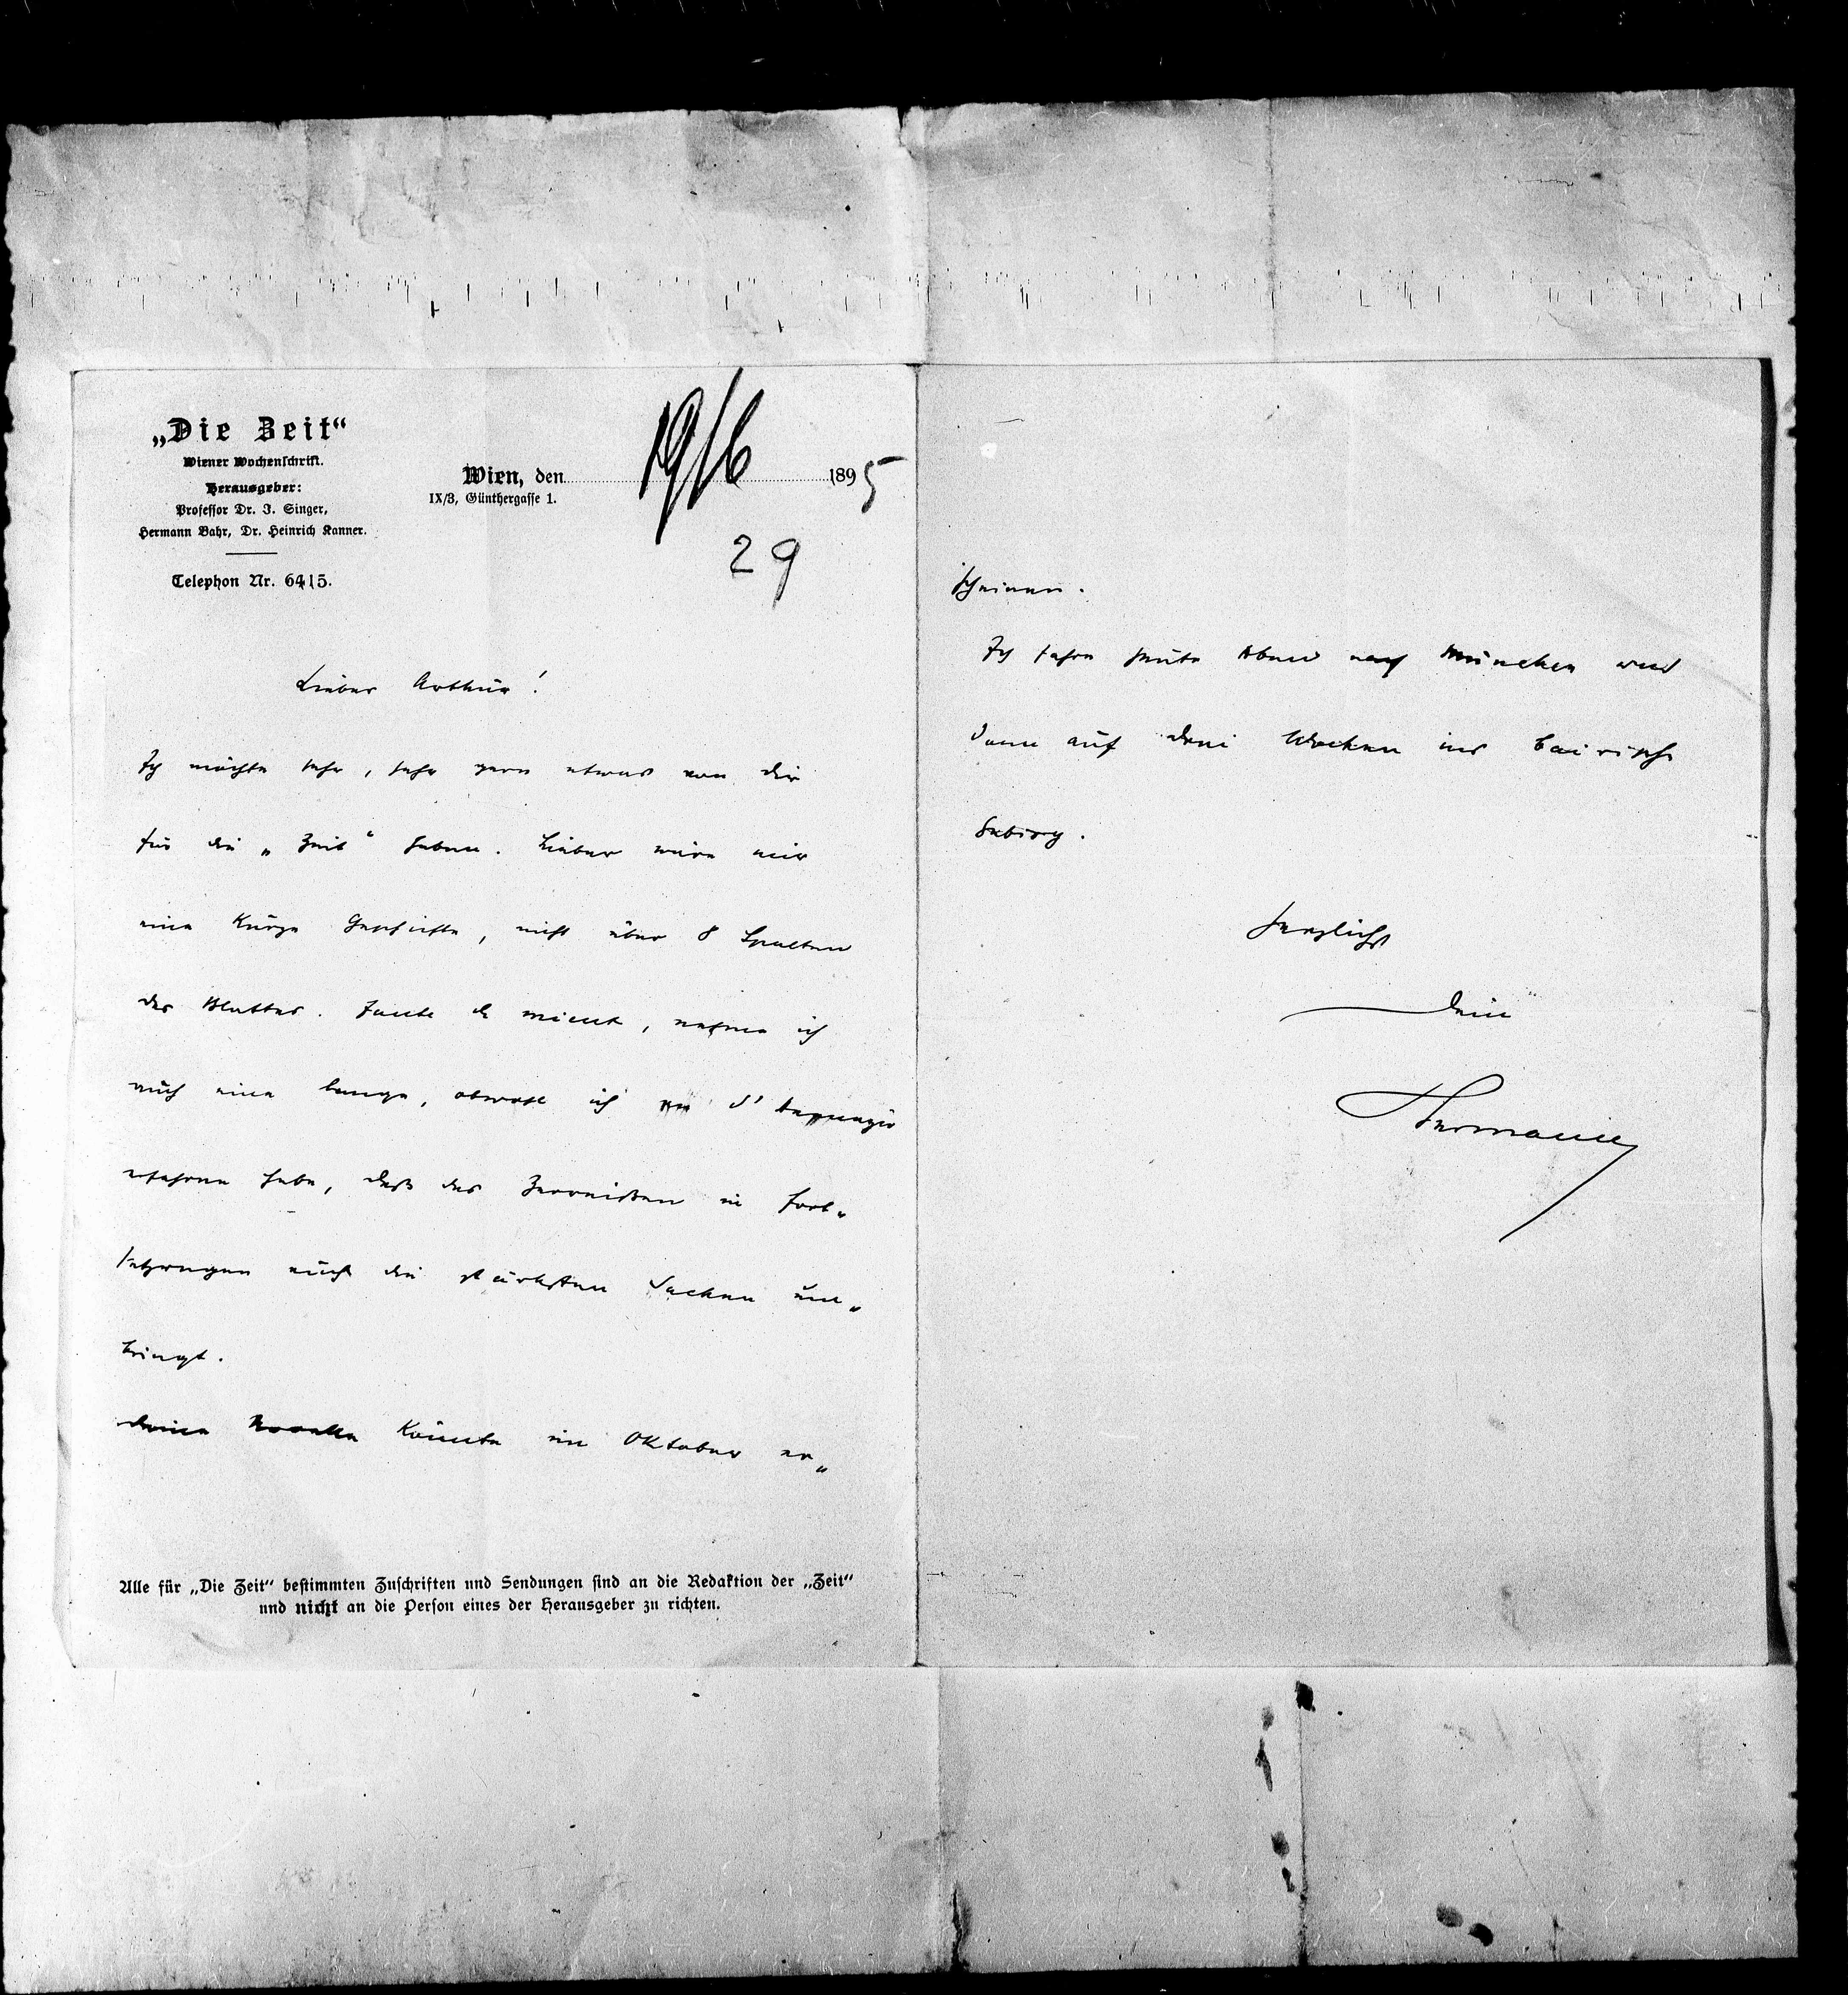 „Die Zeit“
Wiener Wochenschrift.
Herausgeber:
Professor Dr. I. Singer,
Hermann Bahr, Dr. Heinrich Kanner.
Telephon Nr. 6415.
Wien, den 19/6 1895
IX/3, Günthergasse 1.
29
Lieber Arthur!
Ich möchte sehr, sehr gern etwas von Dir
für die „Zeit“ haben. Lieber wäre mir
eine kurze Geschichte, nicht über 8 Spalten
des Blattes. Faute de mieux, nehme ich
auch eine lange, obwohl ich an d'Annunzio
erfahren habe, daß das Zerreißen in Fort„
setzungen auch die stärksten Sachen um„
bringt.
Deine Novelle könnte im Oktober er„
Alle für „Die Zeit“ bestimmten Zuschriften und Sendungen sind an die Redaktion der „Zeit“
und nicht an die Person eines der Herausgeber zu richten.
scheinen.
Ich fahre heute Abend nach München und
dann auf drei Wochen ins bairische
Gebirg.
Herzlichst
Dein
Hermann